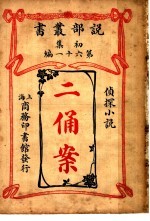 說部叢書
初集
第六十一編
偵探小說
二俑案
上海商務印書館發行